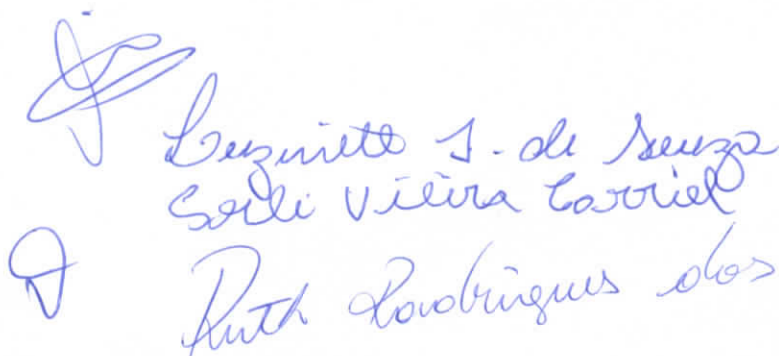 Luzinette J. de Souza
Sorli Vieira Carriel
Ruth Rodrigues dos